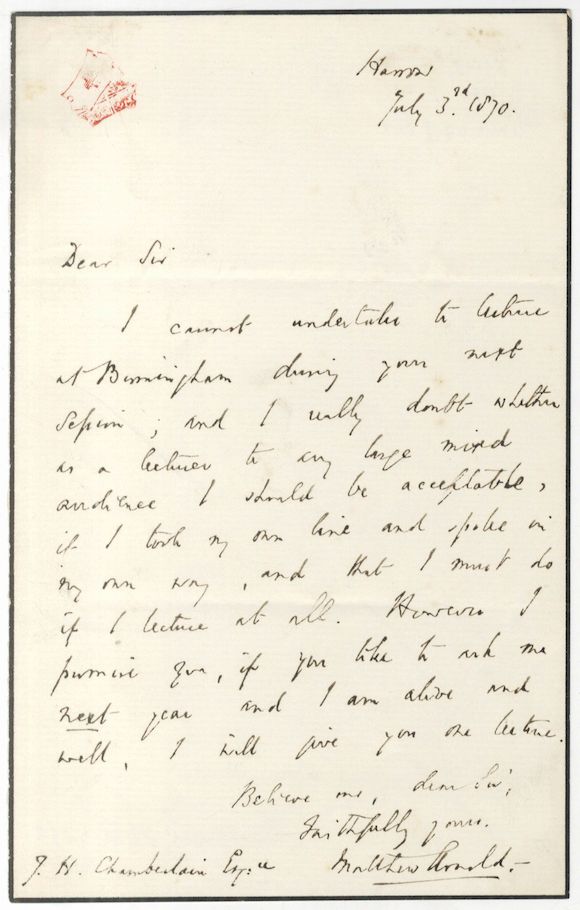 Harrow
July 3.rd 1870.
Dear Sir
I cannot undertake to lecture
at Birmingham during your next
Session; and I really doubt whether
as a lecturer to any large mixed
audience I should be acceptable,
if I took my own line and spoke in
my own way, and that I must do
if I lecture at all. However I
promise you, if you like to ask me
next year and I am alive and
well, I will give you one lecture.
Believe me, dear Sir,
faithfully yours.
Matthew Arnold.-
J. H. Chamberlain Esq:re